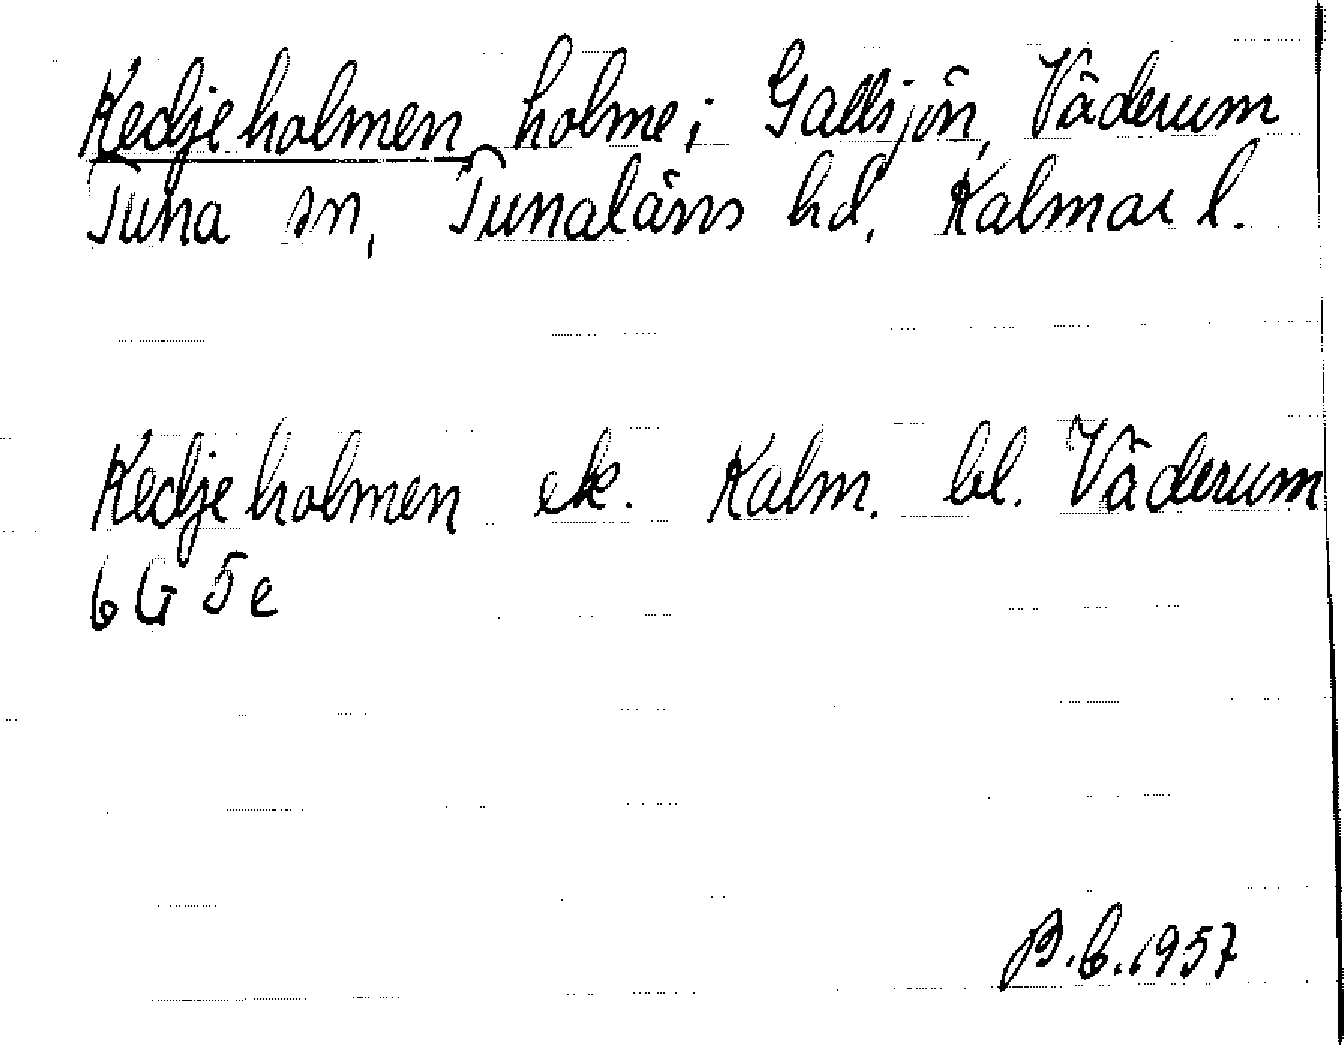 Kedjeholmen, holme i Gallsjön, Väderum
Tuna sn, Tunaläns hd, Kalmar l.
Kedjeholmen ek. Kalm. bl. Väderum
6 G 5 e
B.L. 1957